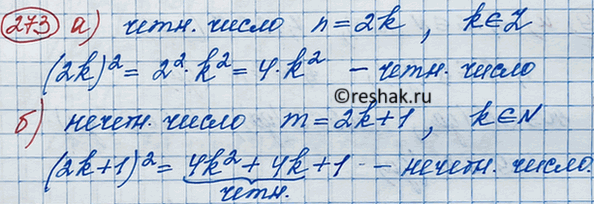 273 а) четн. число n = 2k, k∈Z
(2k)² = 2² · k² = 4 · k² – четн. число
reshak.ru
б) нечетн. число m = 2k+1, k∈N
(2k+1)² = 4k² + 4k + 1 – нечетн. число.
четн.